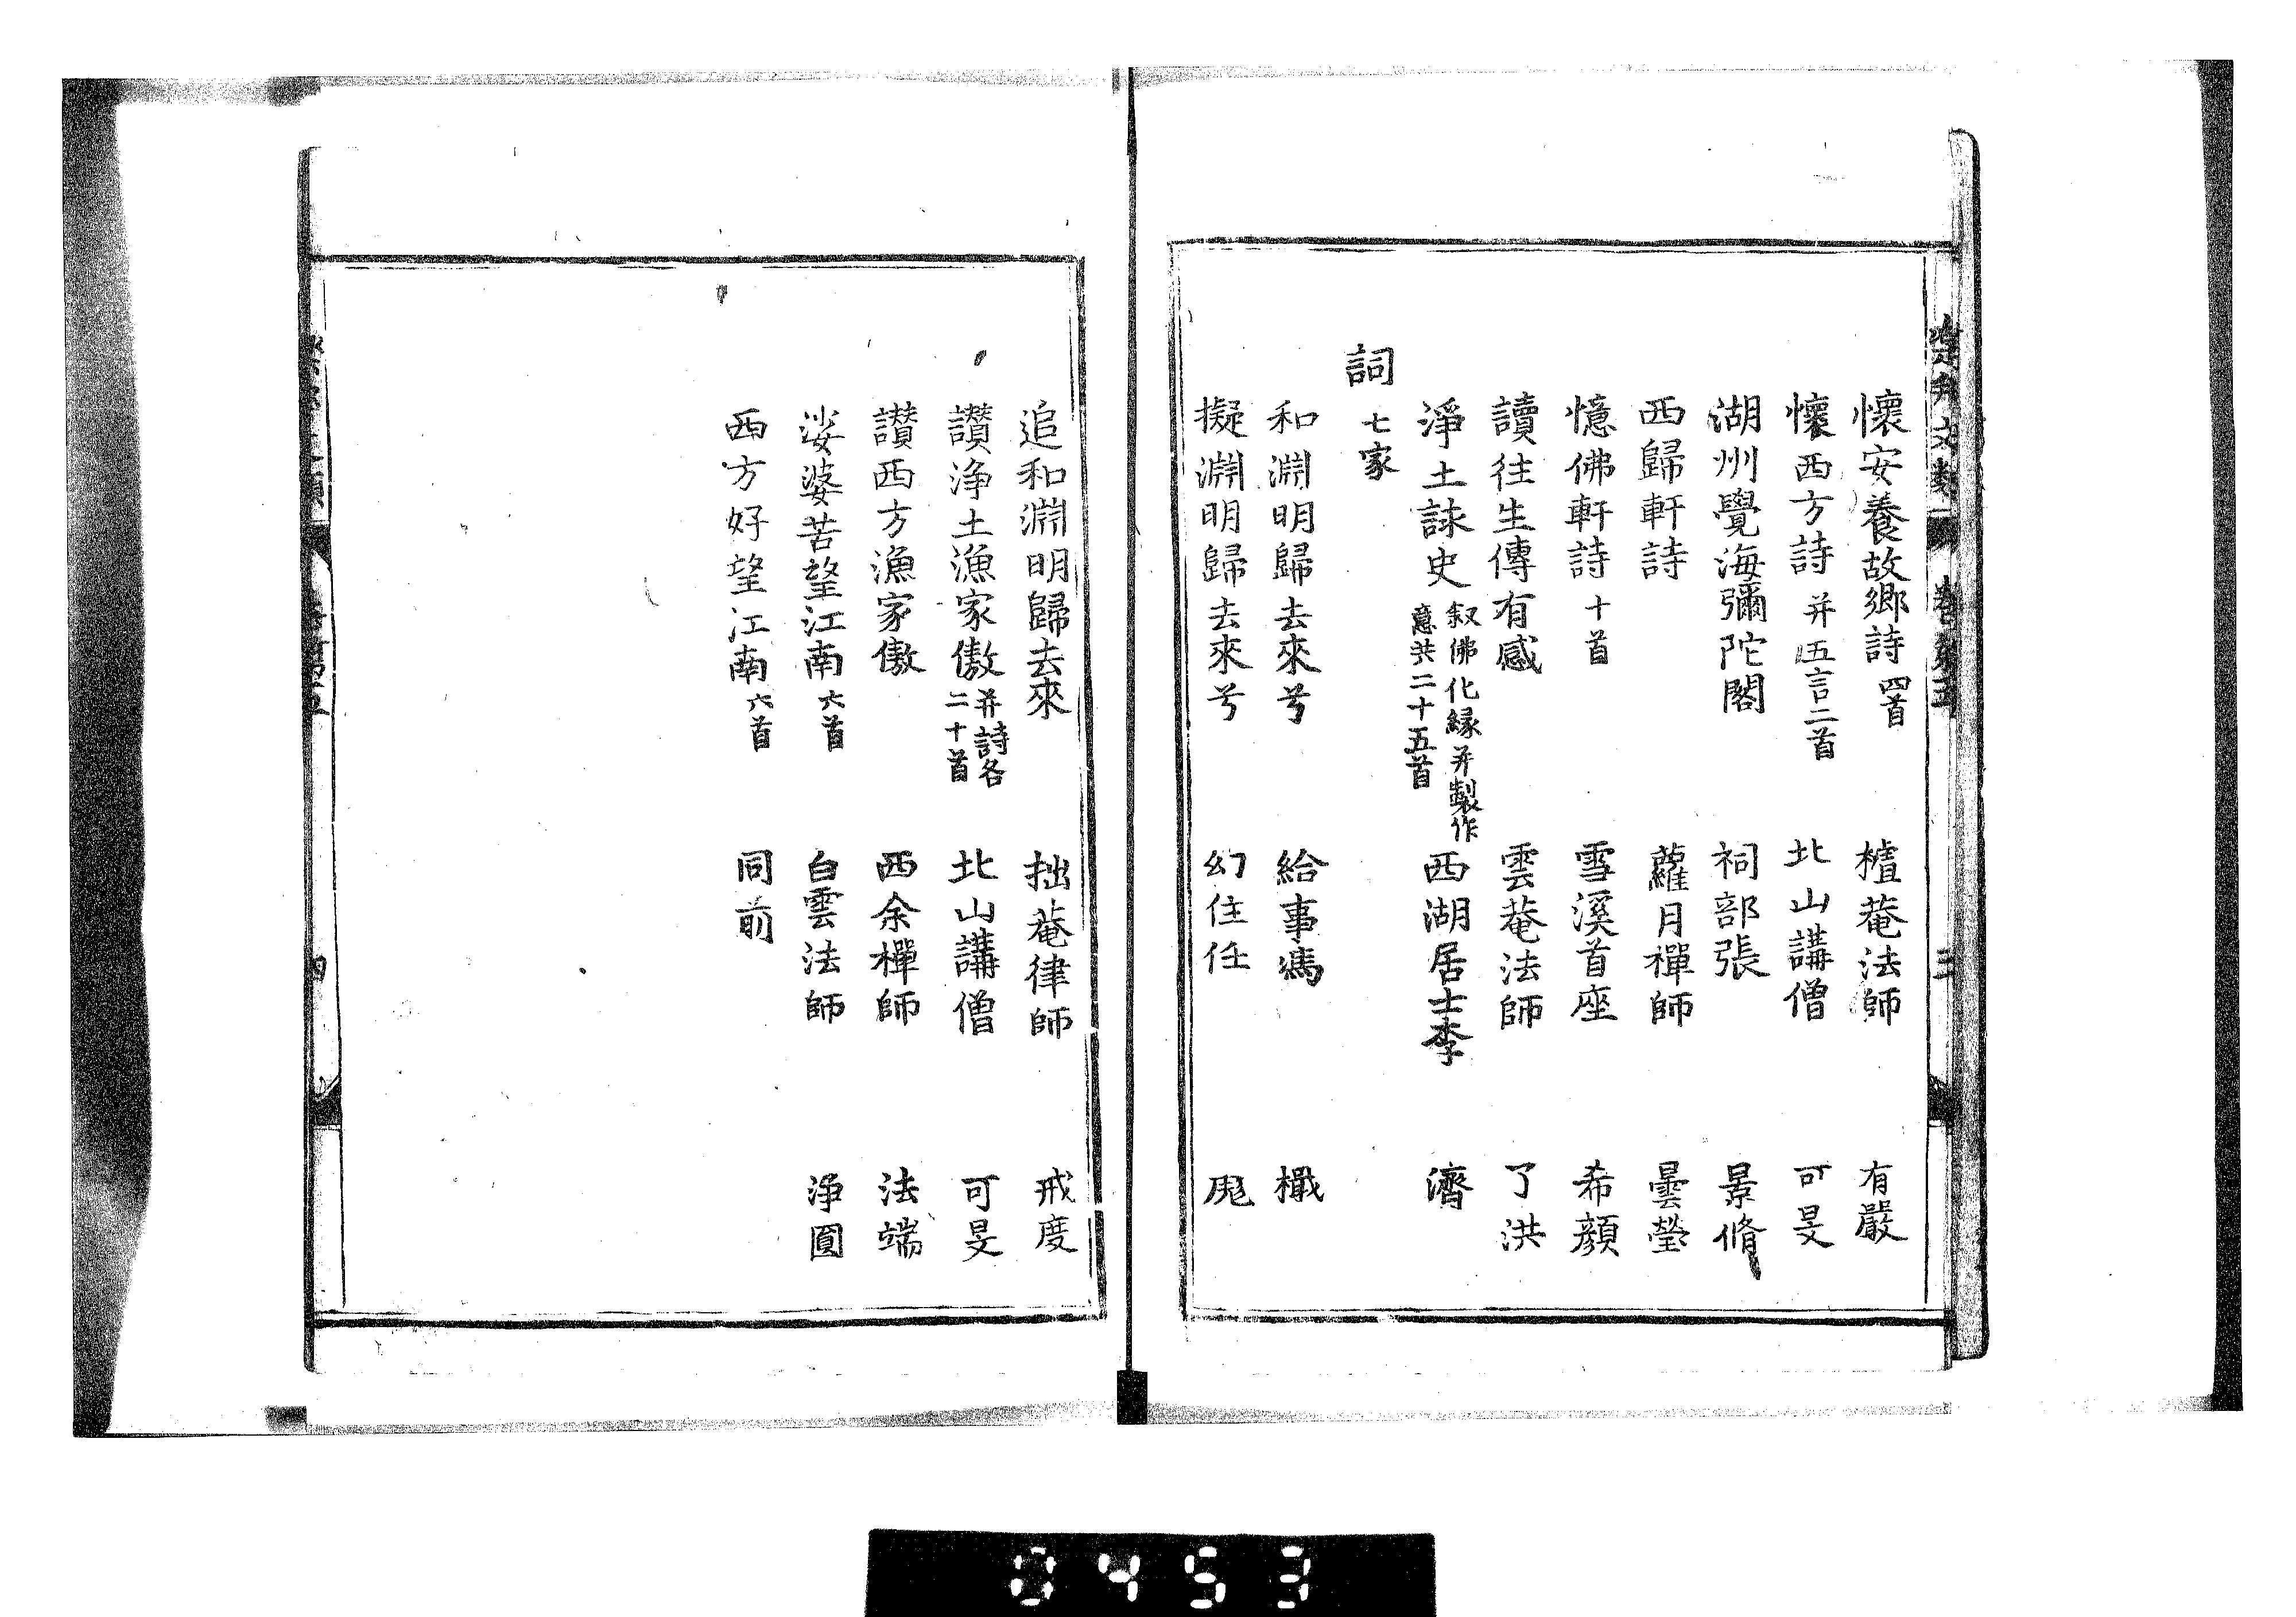 懷安養故鄉詩 四首 樝菴法師 有嚴
懷西方詩 并五言二首 北山講僧 可旻
湖州覺海彌陀閣 祠部張 景脩
西歸軒詩 蘿月禪師 曇瑩
憶佛軒詩 十首 雪溪首座 希顔
讀往生傳有感 雲菴法師 了洪
淨土詠史 叙佛化縁并製作意共二十五首 西湖居士李 濟
詞 七家
和淵明歸去來兮 給事馮 檝
擬淵明歸去來兮 幻住任 彪
追和淵明歸去來 拙菴律師 戒度
讃淨土漁家傲 并詩各二十首 北山講僧 可旻
讃西方漁家傲 西余禪師 法端
娑婆苦望江南 六首 白雲法師 淨圓
西方好望江南 六首 同前
0453